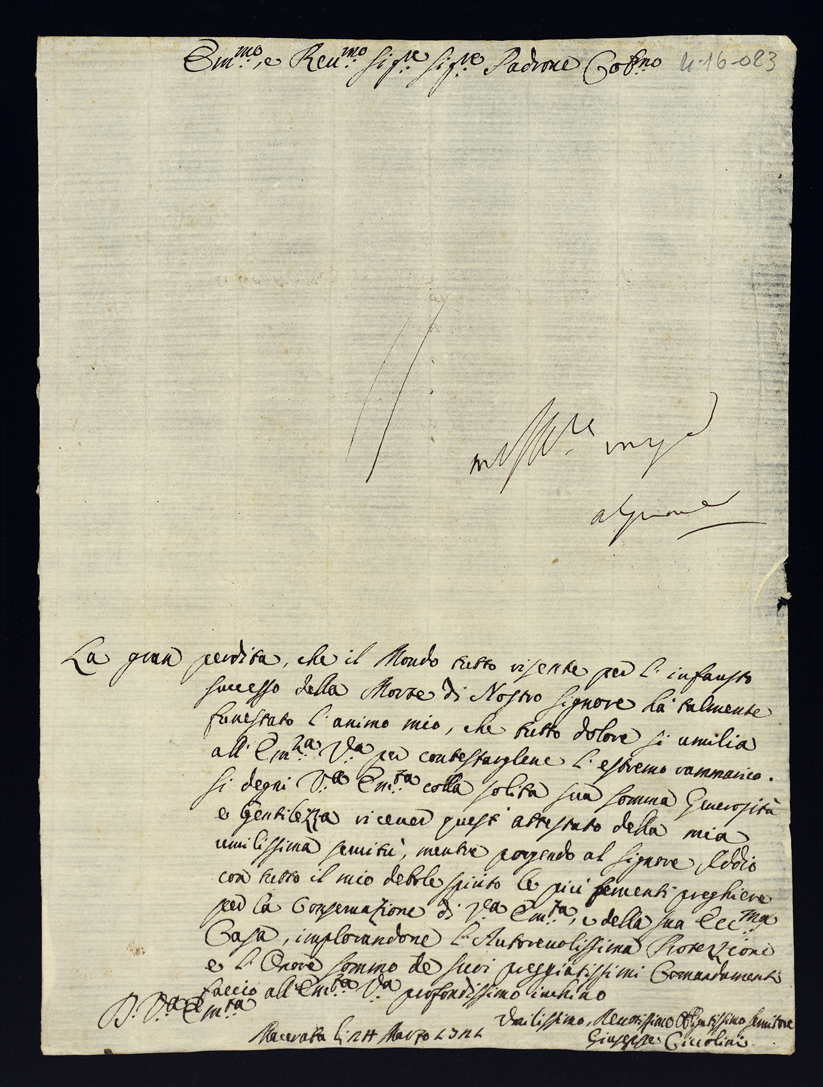 Em.mo, e Reu.mo Sig.re Sig.re Padrone Co
4-16-083
La gran perdita, che il Mondo tutto risente per l'infausto
successo della Morte di Nostro Signore hà talmente
funestato l'animo mio, che tutto dolore si umilia
all'Em.za V.ra per contestarglene l'estremo rammarico.
Si degni V.ra Em.za colla solita sua somma Generosità
e Gentilezza riceuer quest'attestato della mia
umilissima seruitù, mentre porgendo al Signore Iddio
con tutto il mio debole spirito le più feruenti preghiere
per la Conseruazione di V.ra Em.za, e della sua Ecc.ma
Casa, implorandone l'Autoreuolissima Protezzione
e l'Onore sommo de suoi preggiatissimi Comandamenti
faccio all'Em.za V.ra profondissimo inchino
D. V.ra Em.za
Umilissimo, Deuotissimo Seruitore
Macerata li 24 Marzo
Giuseppe Ciccolini